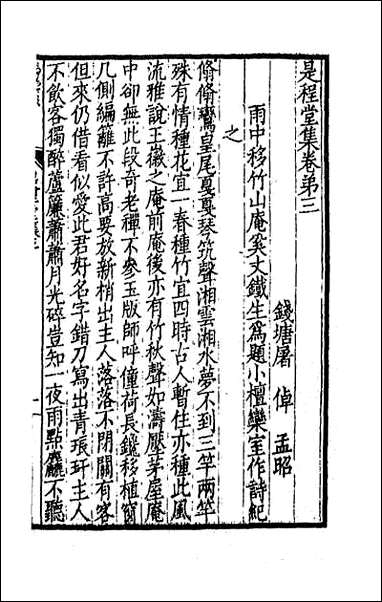 是程堂集卷弟三
錢塘屠倬孟昭
雨中移竹山庵奚丈鐵生爲題小檀欒室作詩紀
之
翛翛鸞皇尾戛戛琴筑聲湘雲湘水夢不到三竿兩竿
殊有情種花宜一春種竹宜四時古人暫住亦種此風
流雅說王徽之庵前庵後亦有竹秋聲如濤壓茅屋庵
中卻無此段奇老禪不參玉版師呼僮荷長鑱移植窗
几側編籬不許高要放新梢出主人落落不閉關有客
但來仍借看似愛此君好名字錯刀寫出青琅玕主人
不飲客獨醉蘆簾蕭蕭月光碎豈知一夜雨點麤不聽